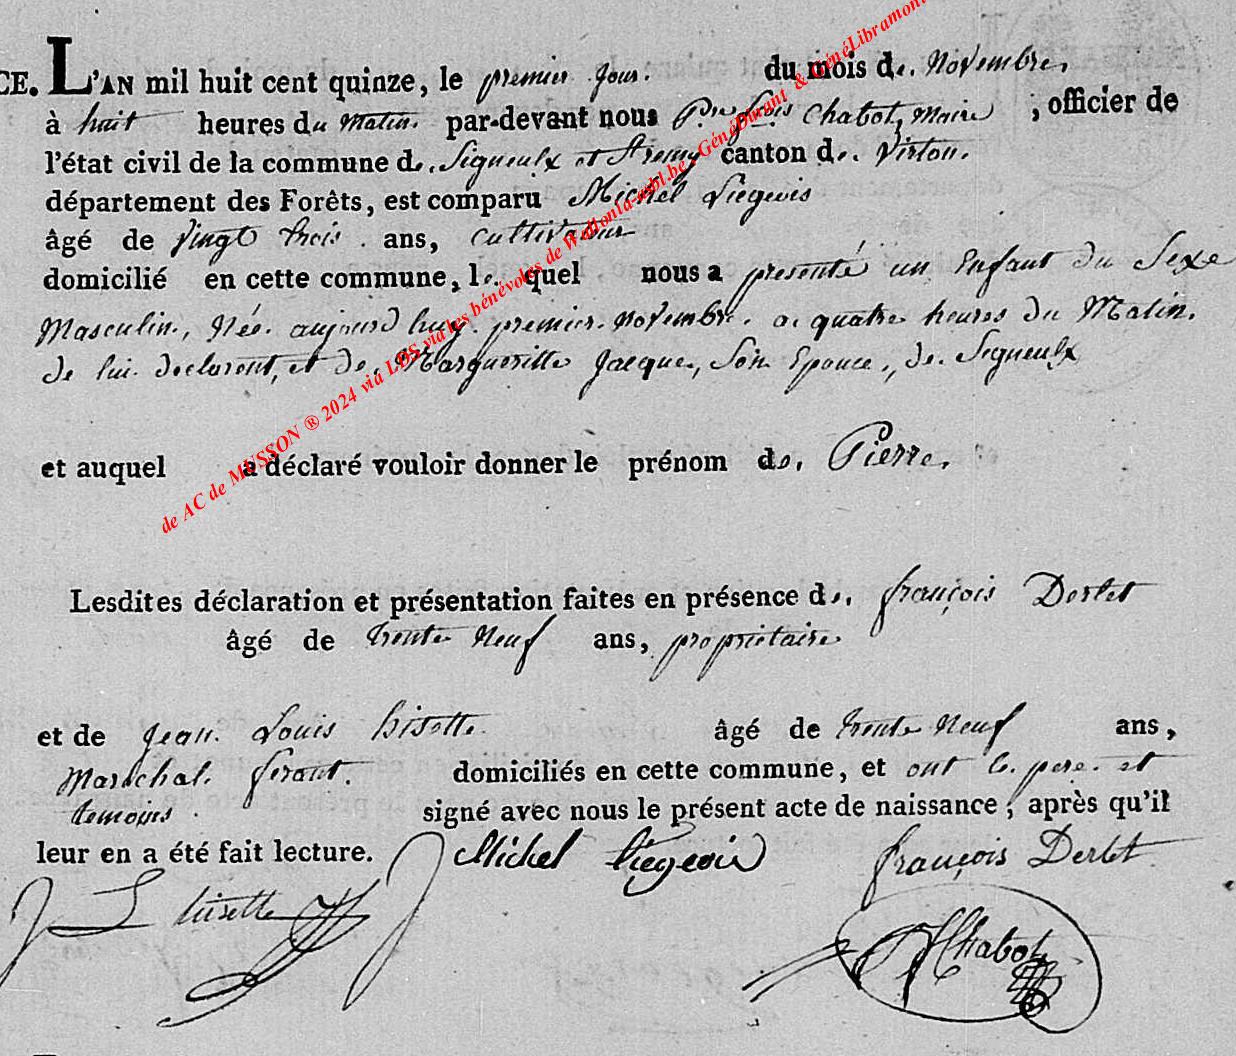 CE. L'AN mil huit cent quinze, le premier Jour. du mois de. Novembre,
à huit heures du Matin. par-devant nous Pre. fois Chabot, Maire , officier de
l'état civil de la commune de. Signeulx et St remy canton de. Virton.
département des Forêts, est comparu Michel Liegeois
âgé de Vingt trois . ans, Cultivateur
domicilié en cette commune, le. quel nous a presenté un Enfant du Sexe
Masculin., Née. aujourd huy. premier. Novembre. a. quatre heures du Matin.
de lui. declarent, et de. Margueritte Jacque, Son Epouce., de. Signeulx
et auquel a déclaré vouloir donner le prénom de. Pierre.
Lesdites déclaration et présentation faites en présence de. françois Derlet
âgé de trente Neuf ans, propriétaire
et de Jean. Louis hisette. âgé de trente Neuf ans,
Maréchal. ferant. domiciliés en cette commune, et ont le. pere. et
temoins . signé avec nous le présent acte de naissance, après qu'il
leur en a été fait lecture. Michel liegeois françois Derlet
J L hisette Chabot
de AC de MUSSON ® 2024 via LDS via les bénévoles de Wallonia-asbl.be - GénéDurant & GénéLibramont